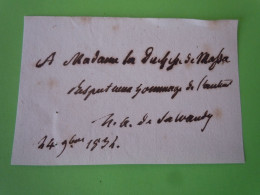 A Madame la Duchesse de Massa
respectueux hommage de l'auteur
N. A. de Salvandy
24 9bre 1834.